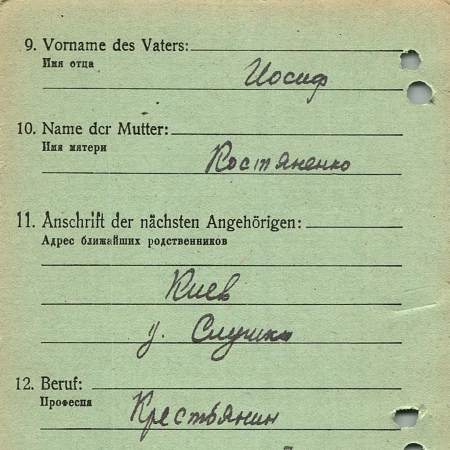 9. Vorname des Vaters:
Имя отца
Иосиф
10. Name der Mutter:
Имя матери
Костяненко
11. Anschrift der nächsten Angehörigen:
Адрес ближайших родственников
Киев
у. Слушки
12. Beruf:
Професия
Крестьянин